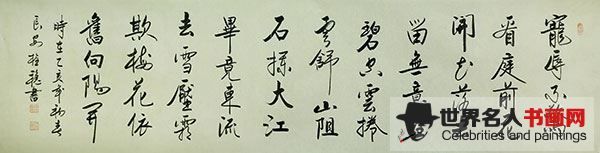 寵辱不驚
看庭前花
開花落
留無意
碧空雲捲
雲舒山阻
石攔大江
畢竟東流
去雪壓霜
欺梅花依
舊向陽開
時在乙亥年初春
長安 書
世界名人书画网
Celebrities and paintings